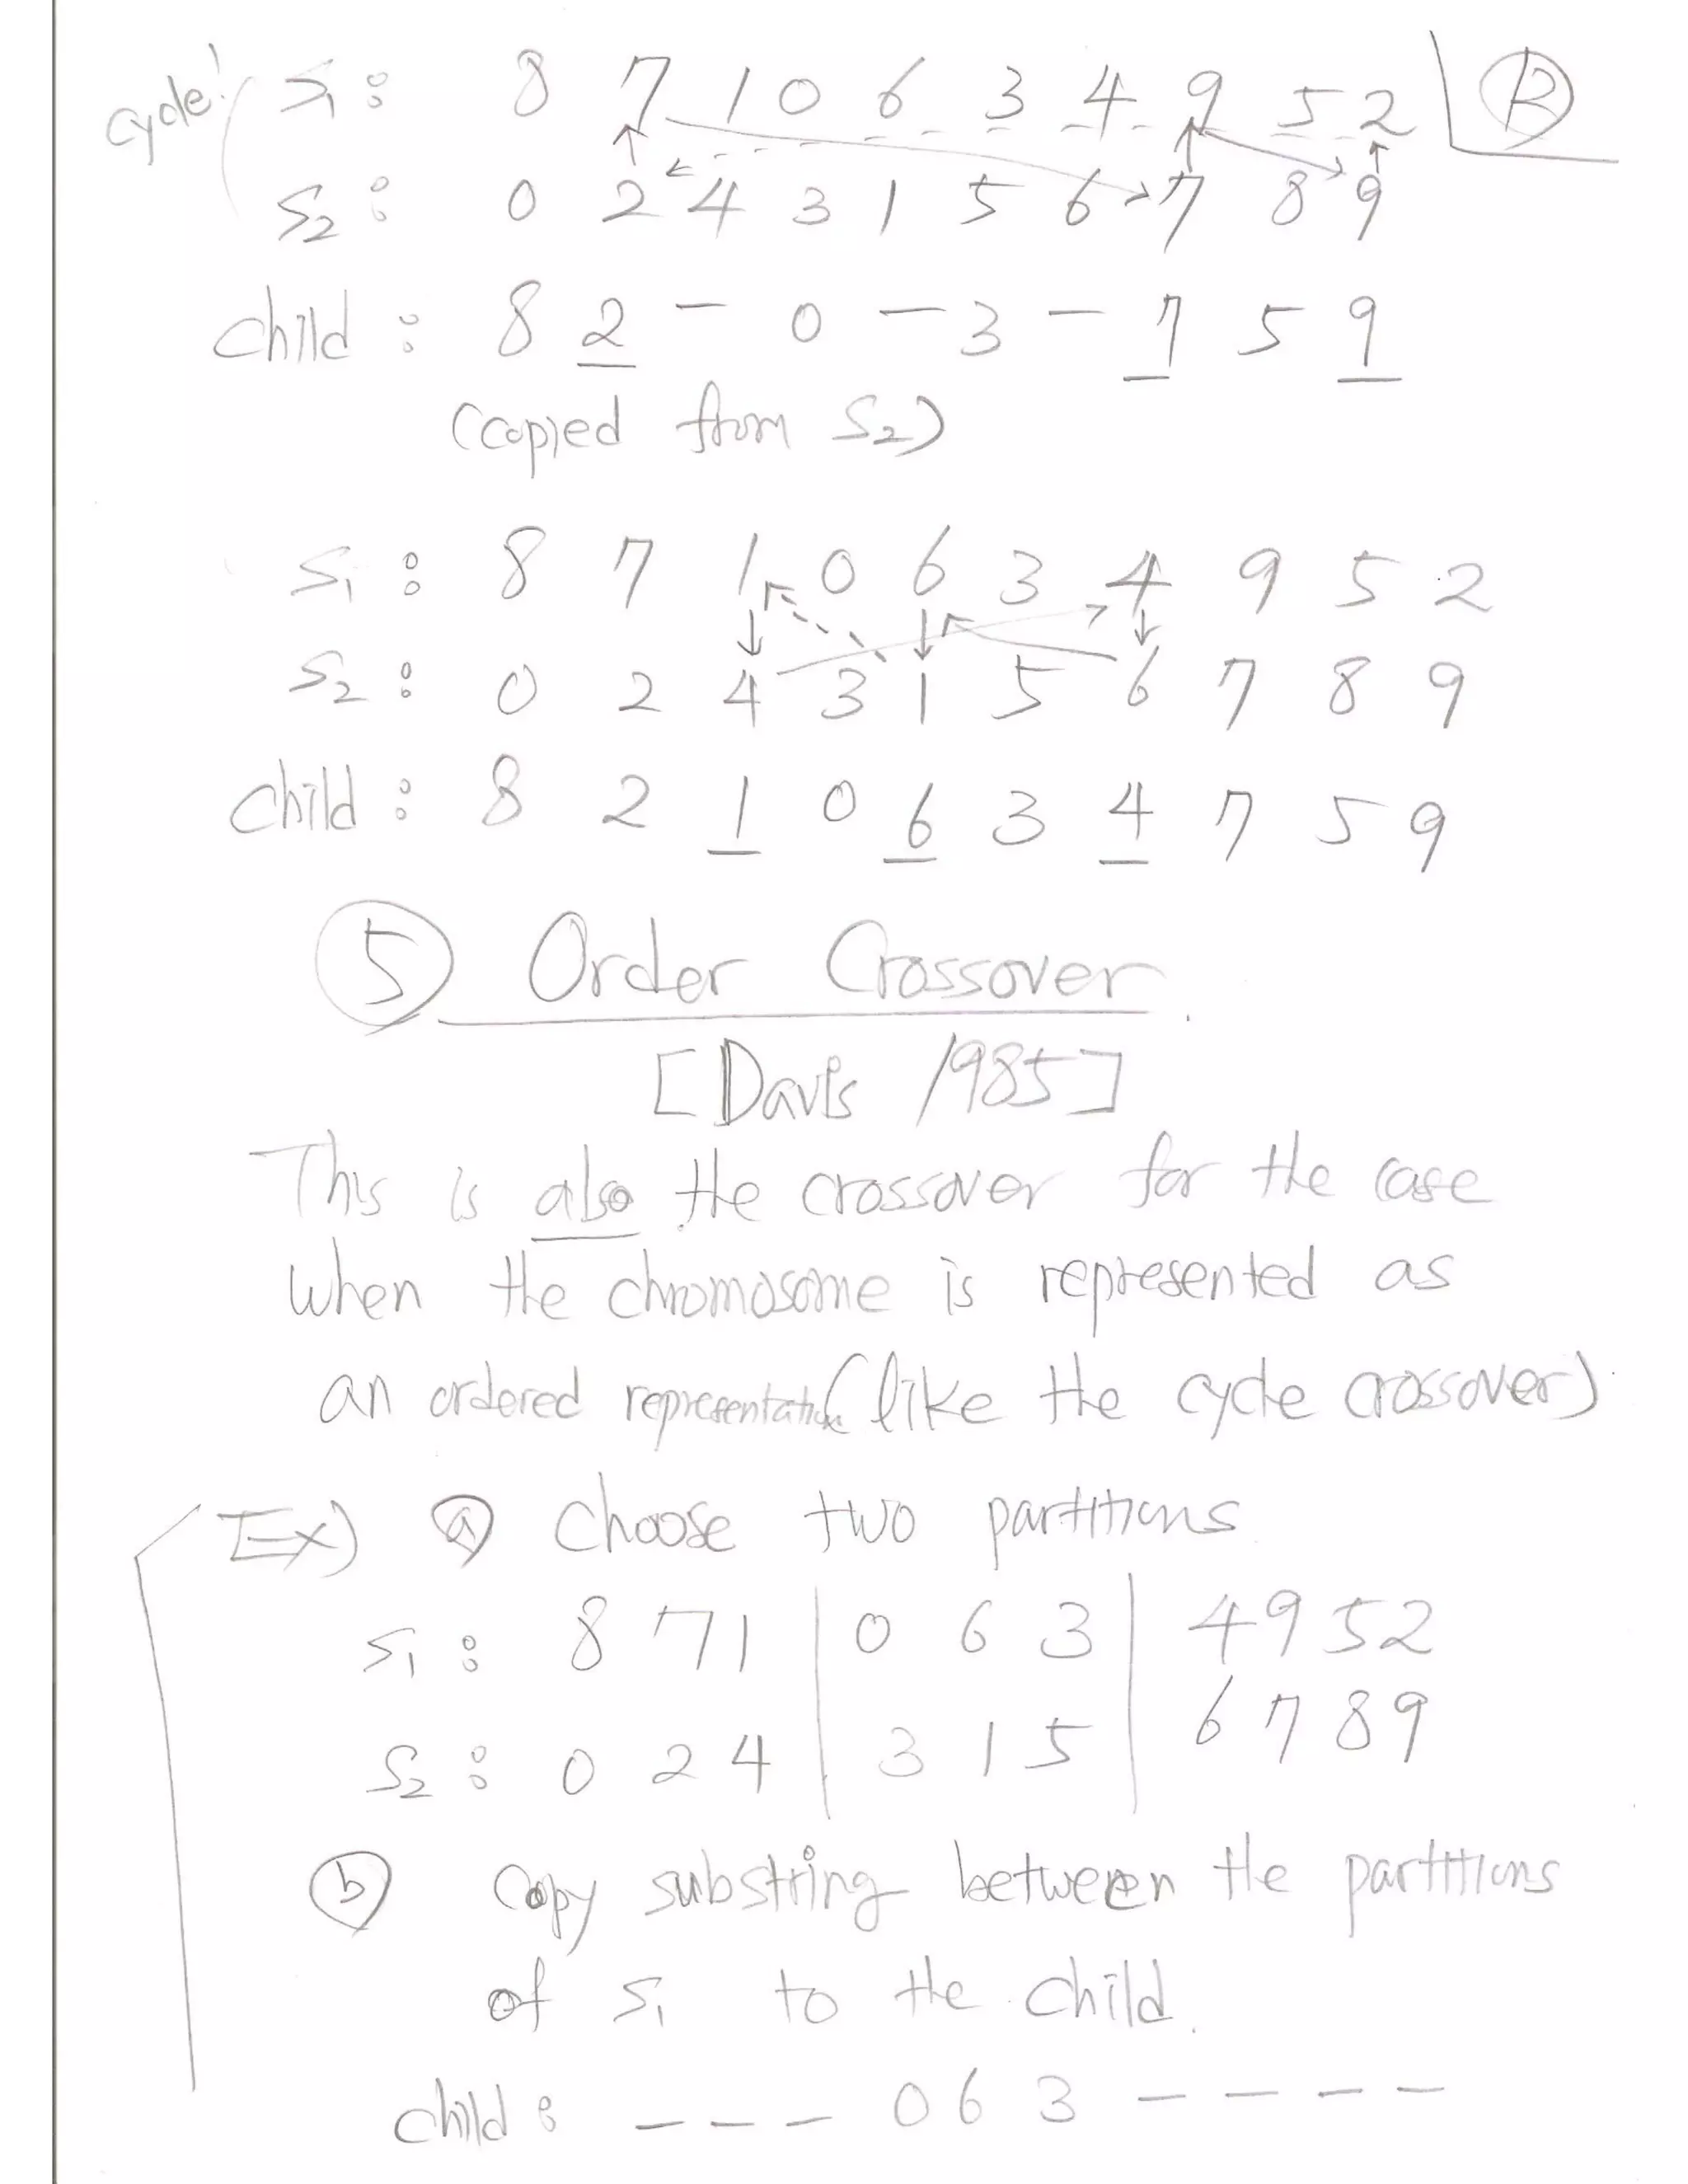 cycle! S1: 8 7 1 0 6 3 4 9 5 2 12
S2: 0 2 4 3 1 5 6 7 8 9
child: 8 2 - 0 - 3 - 7 5 9
(copied from S2)
S1: 8 7 1 0 6 3 4 9 5 2
S2: 0 2 4 3 1 5 6 7 8 9
child: 8 2 1 0 6 3 4 7 5 9
5 Order Crossover
[Davis 1985]
This is also the crossover for the case
when the chromosome is represented as
an ordered representation (like the cycle crossover)
Ex) a choose two partitions
S1: 8 7 1 | 0 6 3 | 4 9 5 2
S2: 0 2 4 | 3 1 5 | 6 7 8 9
b Copy substring between the partitions
of S1 to the child.
child: - - - 0 6 3 - - - -